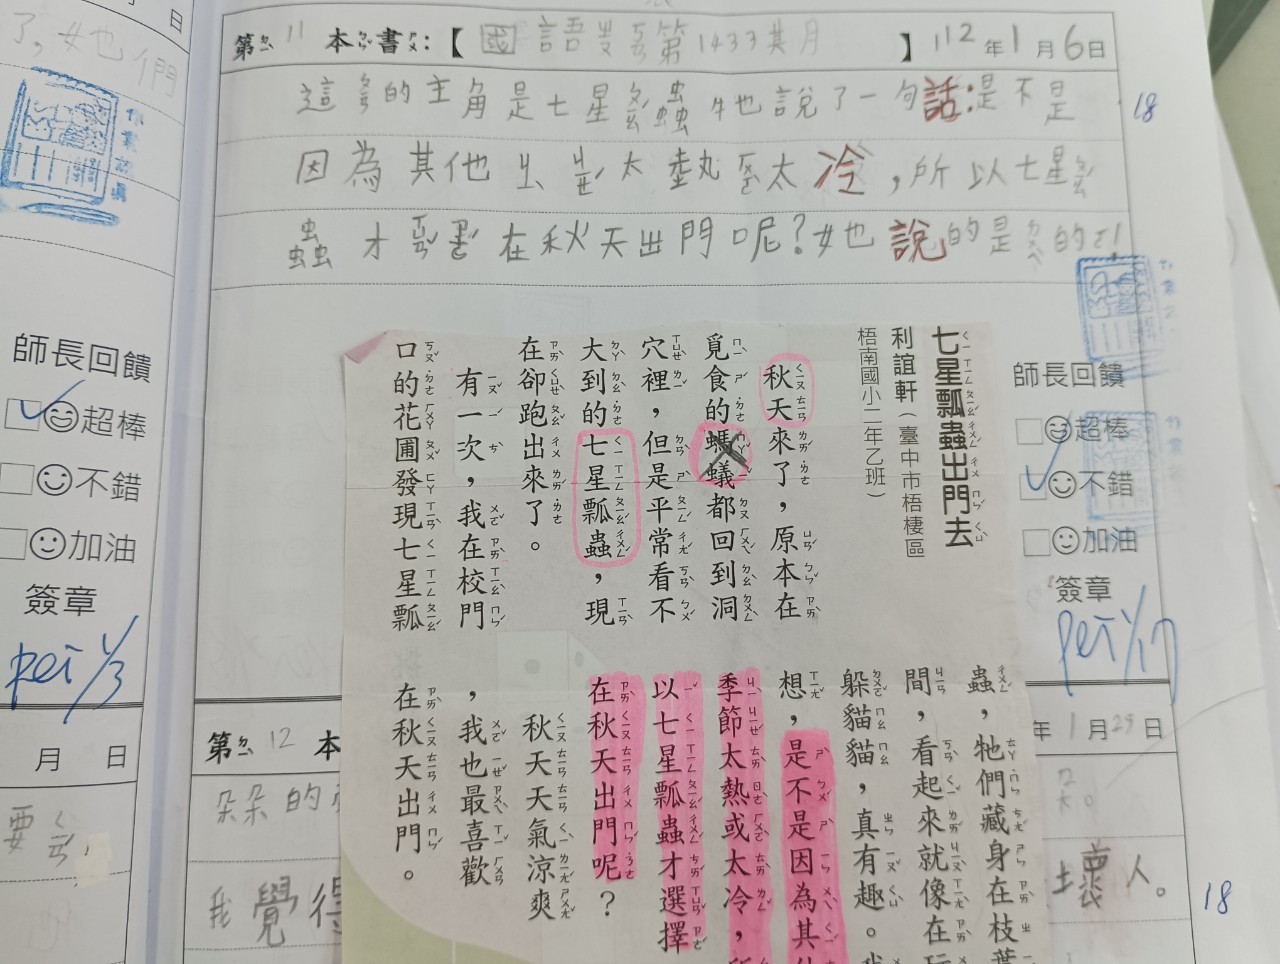 第ㄉㄧˋ 11 本ㄅㄣˇ書ㄕㄨ：【國語ㄓㄡ 第1433其月】112年1月6日
的主角是七星 蟲牠說了一句話：是不是
因為其他 太 太冷，所以七星
蟲才 在秋天出門呢？她說的是 的
18
七星瓢蟲出門去
利誼軒（臺中市梧棲區
梧南國小二年乙班）
秋天來了，原本在
覓食的螞蟻都回到洞
穴裡，但是平常看不
大到的七星瓢蟲，現
在卻跑出來了。
有一次，我在校門
口的花圃發現七星瓢
蟲，牠們藏身在枝葉
間，看起來就像在玩
躲貓貓，真有趣。我
想，是不是因為其他
季節太熱或太冷，所
以七星瓢蟲才選擇
在秋天出門呢？
秋天天氣涼爽
，我也最喜歡
在秋天出門。
師長回饋
超棒
不錯
加油
簽章
pei 1/17
第ㄉㄧˋ 12 本
年1月29日
朵朵的
我覺得
壞人。
18
日
了，她們
師長回饋
超棒
不錯
加油
簽章
pei 1/3
月 日
要